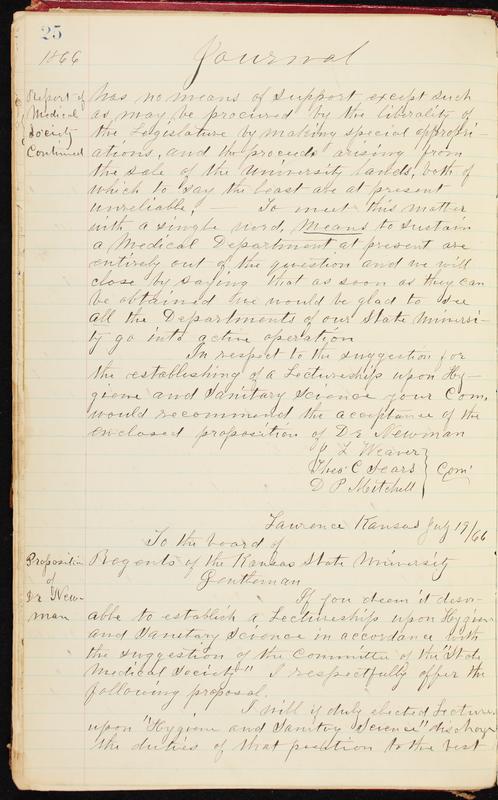 25
1866
Journal
Report of
Medical
Society
Continued
has no means of support except such
as may be procured by the liberality of
the Legislature by making special appropri-
ations, and the proceeds arising from
the sale of the University lands, both of
which to say the least are at present
unreliable, — To meet this matter
with a single word, Means to sustain
a Medical Department at present are
entirely out of the question and we will
close by saying that as soon as they can
be obtained we would be glad to see
all the Departments of our State Universi-
ty go into active operation
In respect to the suggestion for
the establishing of a Lectureship upon Hy-
giene and Sanitary Science your Com.
would recommend the acceptance of the
enclosed proposition of Dr Newman
J L Weaver
Theo. C Sears
D P Mitchell
Com
Lawrence Kansas July 19/66
To the board of
Proposition
of
Dr New-
man
Regents of the Kansas State University
Gentleman
If you deem it desir-
able to establish a Lectureship upon Hygiene
and Sanitary Science in accordance with
the suggestion of the Committee of the "State
Medical Society" I respectfully offer the
following proposal.
I will if duly elected Lecturer
upon "Hygiene and Sanitry Science" discharge
the duties of that position to the best